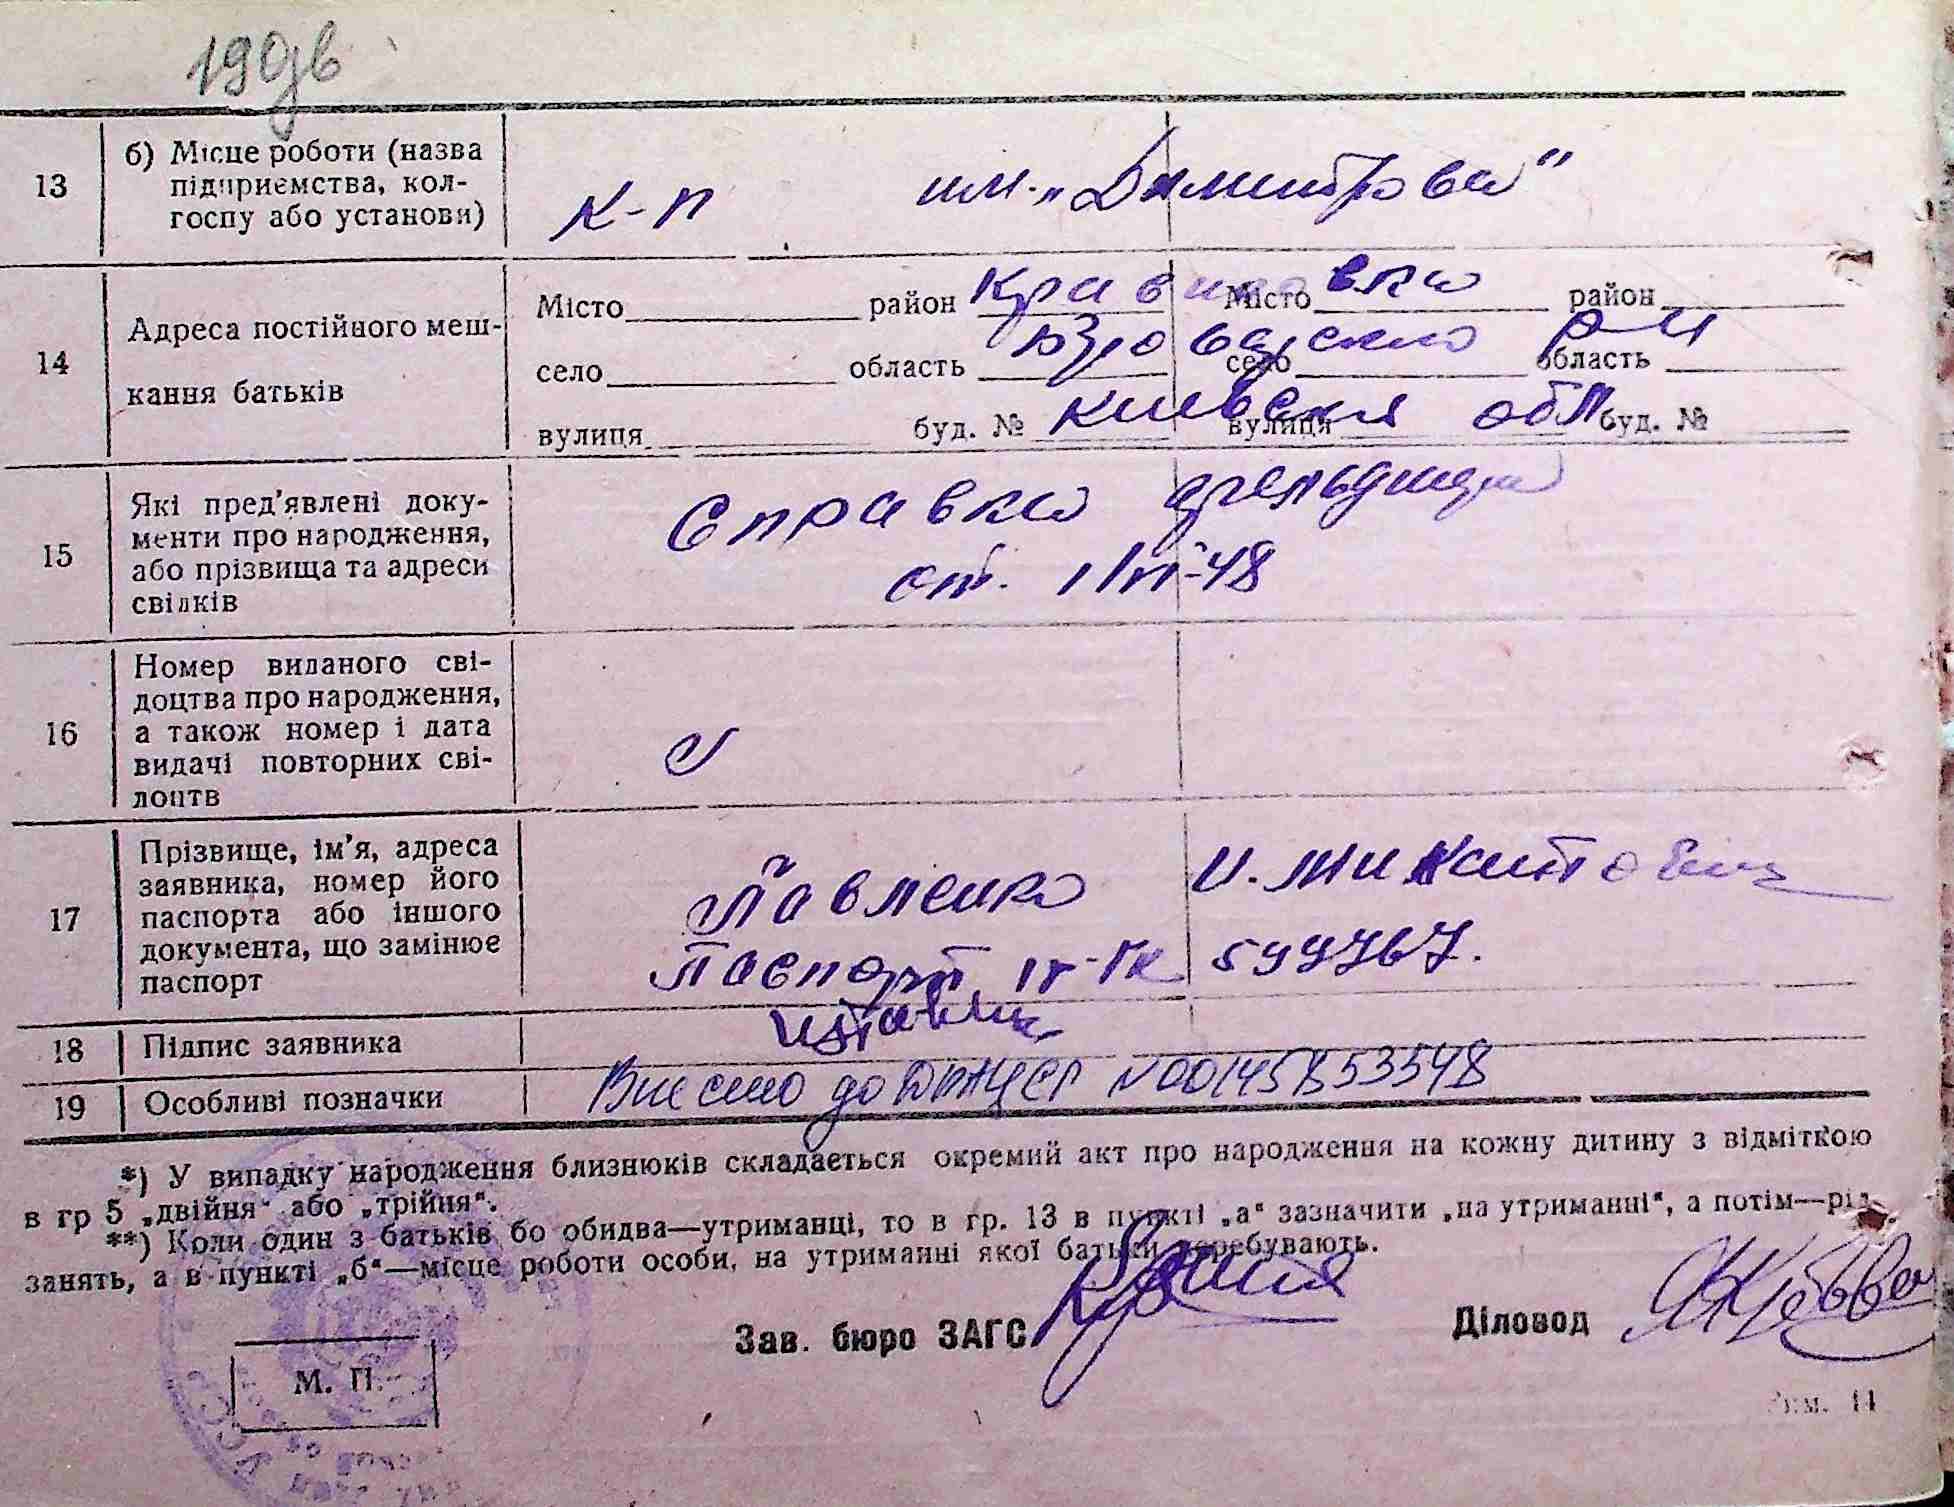 19
13
б) Місце роботи (назва
підприємства, кол-
госпу або установи)
К-п им. „Димитрова"
14
Адреса постійного меш-
кання батьків
Місто район Місто район
село область село область
вулиця буд. № вулиця буд. №
р-н
Киевская обл
15
Які пред'явлені доку-
менти про народження,
або прізвища та адреси
свідків
Справка
от. 48
16
Номер виданого сві-
доцтва про народження,
а також номер і дата
видачі повторних сві-
доцтв
17
Прізвище, ім'я, адреса
заявника, номер його
паспорта або іншого
документа, що замінює
паспорт
Павленко И. Микитович
Паспорт 599767.
18
Підпис заявника
19
Особливі позначки
Внесено до ДРАЦСГ N00145853548
*) У випадку народження близнюків складається окремий акт про народження на кожну дитину з відміткою
в гр 5 „двійня" або „трійня".
**) Коли один з батьків бо обидва—утриманці, то в гр. 13 в пункті „а" зазначити „на утриманні", а потім—рід
занять, а в пункті „б"—місце роботи особи, на утриманні якої батьки перебувають.
Зав. бюро ЗАГС Діловод
М. П.